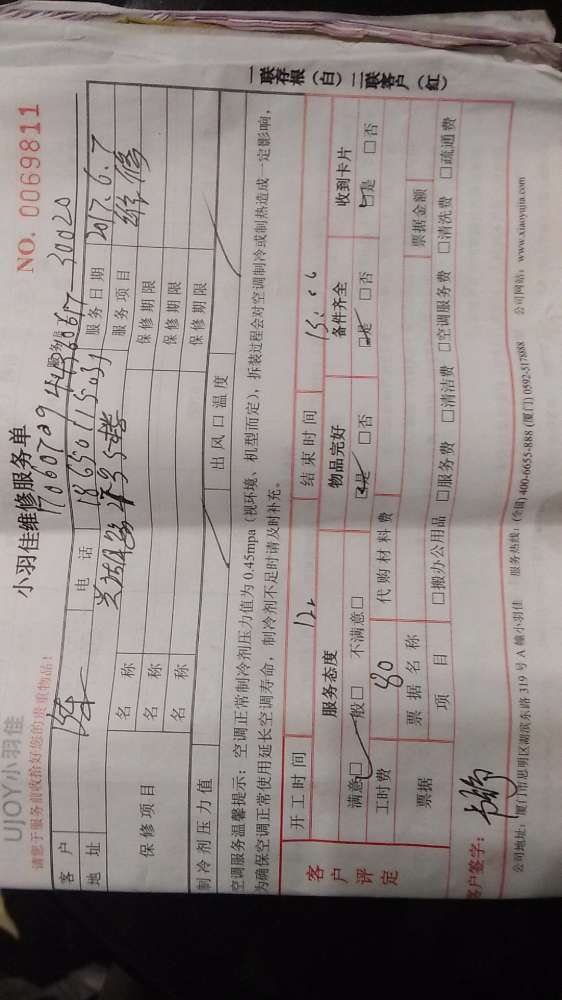 UJOY小羽佳
小羽佳维修服务单
NO. 0069811
请您于服务前收拾好您的贵重物品!
客户 陈 电话 18650115031 服务日期 2017.6.7
地址 服务项目 维修
保修项目 名称 保修期限
名称 保修期限
名称 保修期限
制冷剂压力值 出风口温度
空调服务温馨提示：空调正常制冷剂压力值为 0.45mpa（视环境、机型而定），拆装过程会对空调制冷或制热造成一定影响，
为确保空调正常使用延长空调寿命，制冷剂不足时请及时补充。
客户评定
开工时间 结束时间
服务态度 物品完好 备件齐全 收到卡片
满意□ 一般□ 不满意□ □是 □否 □是 □否 □是 □否
工时费 80 代购材料费
票据 票据名称 票据金额
项目 □搬办公用品 □服务费 □清洁费 □空调服务费 □清洗费 □疏通费
客户签字：
公司地址：厦门市思明区湖滨东路 319 号 A 幢小羽佳 服务热线：(全国) 400-6655-888 (厦门) 0592-5178888 公司网站：www.xiaoyujia.com
一联存根（白）二联客户（红）